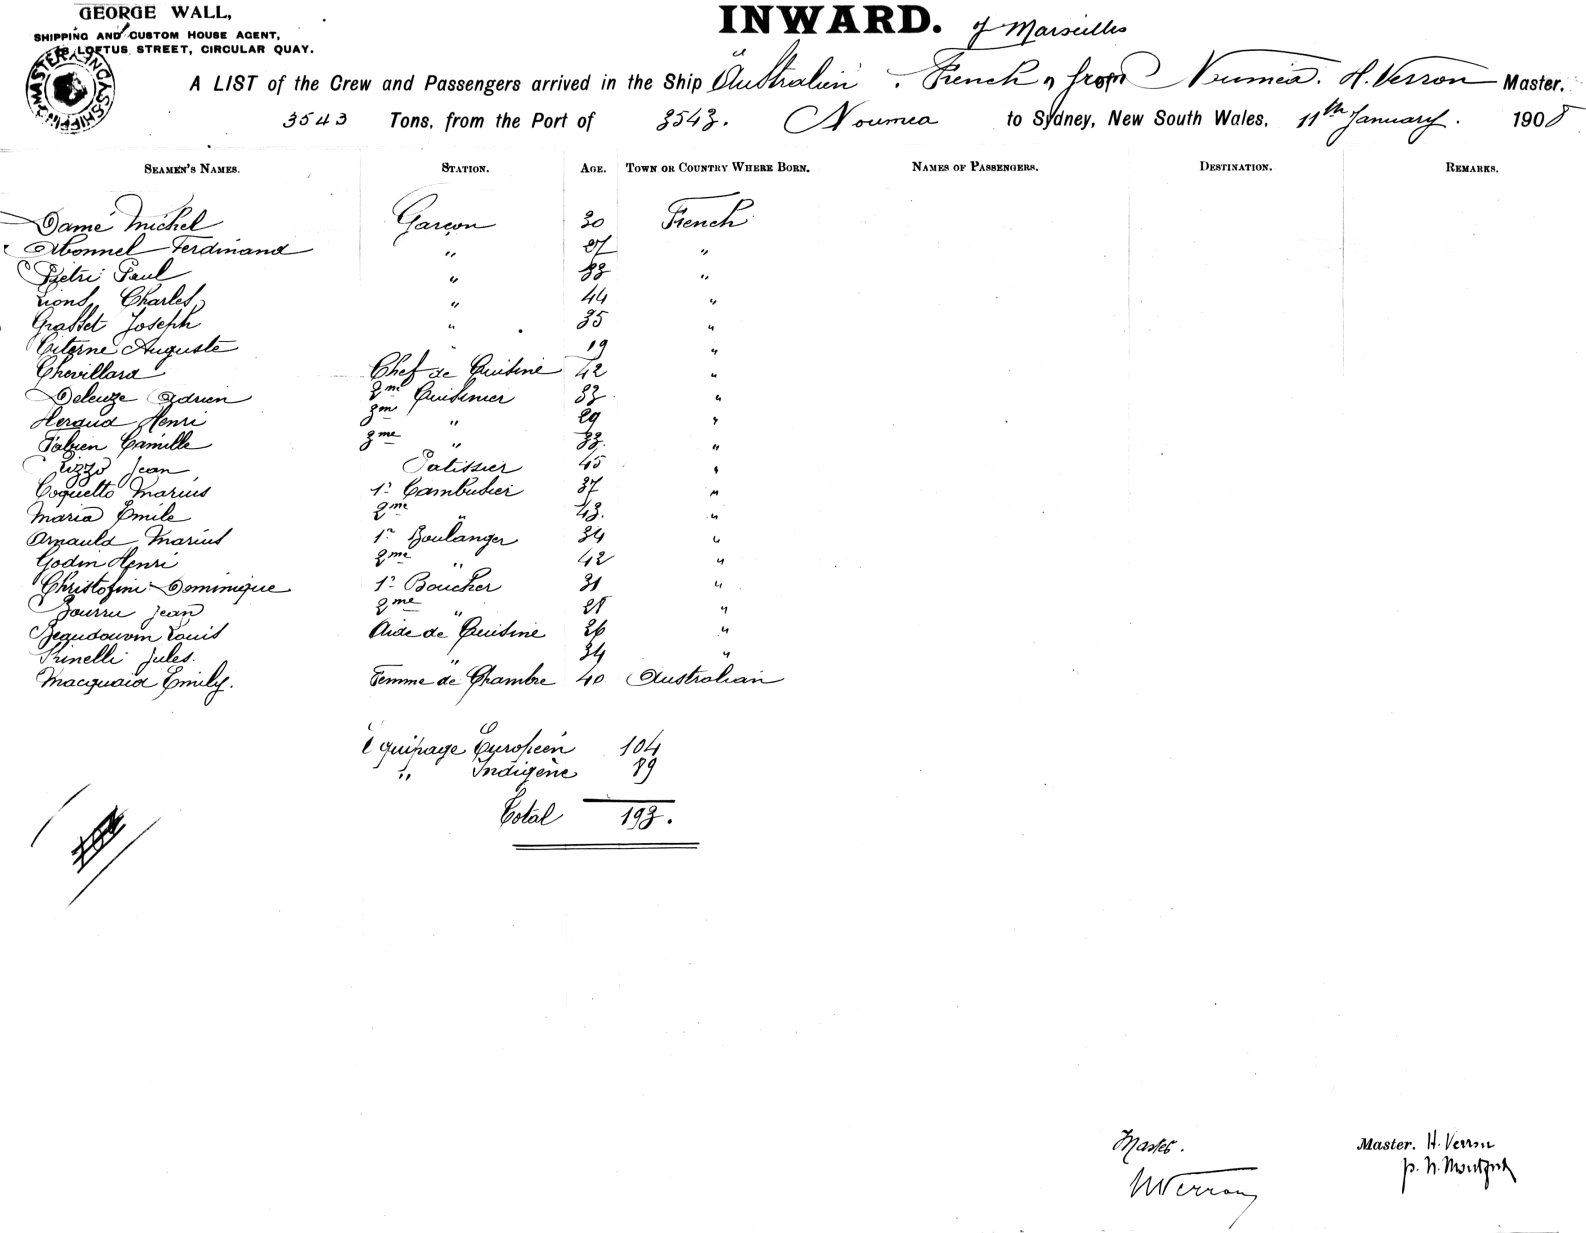 GEORGE WALL,
SHIPPING AND CUSTOM HOUSE AGENT,
LOFTUS STREET, CIRCULAR QUAY.
INWARD. of Marseilles
A LIST of the Crew and Passengers arrived in the Ship "Australien". French from Noumea. H. Verron Master.
3543 Tons, from the Port of 3543. Noumea to Sydney, New South Wales, 11th January. 1908
SEAMEN'S NAMES. STATION. AGE. TOWN OR COUNTRY WHERE BORN. NAMES OF PASSENGERS. DESTINATION. REMARKS.
Damé Michel Garçon 30 French
Abonnel Ferdinand " 27 "
Pietri Paul " 33 "
Lions Charles " 44 "
Grasset Joseph " 35 "
Citerne Auguste " 19 "
Chevillard Chef de Cuisine 42 "
Deleuze Adrien 2me Cuisinier 33 "
Heraud Henri 3m " 29 "
Fabien Camille 3me " 33 "
Rizzo Jean Patissier 45 "
Coquetto Marius 1r Cambusier 37 "
Maria Emile 2me " 43. "
Arnauld Marius 1r Boulanger 34 "
Godin Henri 2me " 42 "
Christofini Dominique 1r Boucher 31 "
Bourru Jean 2me " "
Beaudouvin Louis Aide de Cuisine 26 "
Prinelli Jules. " 34 "
Macquaid Emily. Femme de Chambre 40 Australian
Equipage Européen 104
" Indigène 89
Total 193.
Master. Master. H. Verron
H Verron p. H.